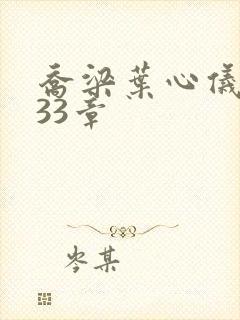 乔梁叶心仪
33章
岑某